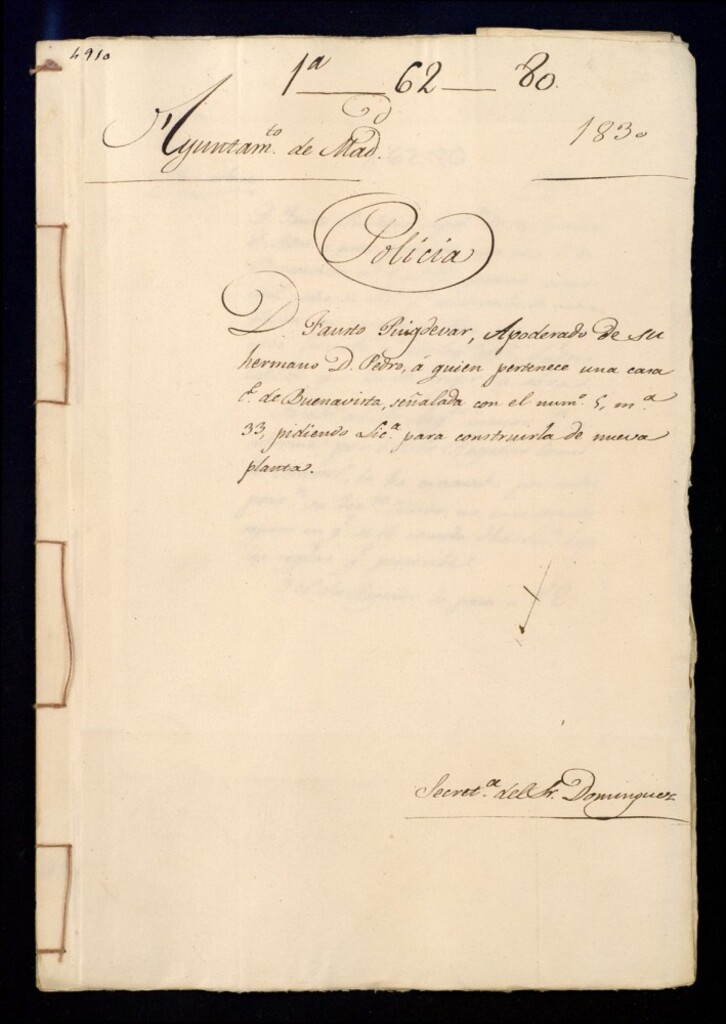 4910
1ª 62 80.
Ayuntamᵗᵒ de Madᵈ.
1830
Policia
D. Fausto Puigdevar, Apoderado de su
hermano D. Pedro, á quien pertenece una casa
cᵉ. de Buenavista, señalada con el numº. 5, mª.
33, pidiendo Licª. para construirla de nueva
planta.
Secretª. del Sr. Dominguez